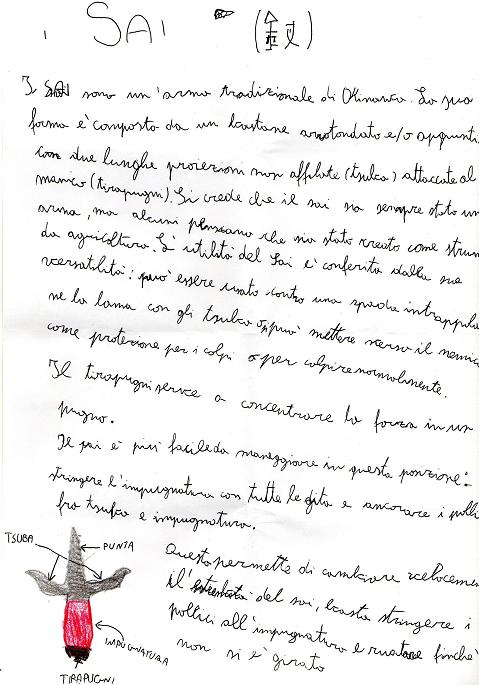 SAI - (釵)
I SAI sono un'arma tradizionale di Okinawa. La sua
forma è composta da un bastone arrotondato e/o appunti
con due lunghe proiezioni non affilate (tsuba) attaccate al
manico (tirapugni). Si crede che il sai sia sempre stato un
arma, ma alcuni pensano che sia stato creato come strum
da agricoltura. L'utilità del Sai è conferita dalla sua
versatilità: può essere usato contro una spada intrappola
ne la lama con gli tsuba o si può mettere verso il nemico
come protezione per i colpi o per colpire normalmente.
Il tirapugni serve a concentrare la forza in un
pugno.
Il sai è più facile da maneggiare in questa posizione:
stringere l'impugnatura con tutte le dita e ancorare i polli
fra tsuba e impugnatura.
Questo permette di cambiare velocemen
il del sai, basta stringere i
pollici all'impugnatura e ruotare finchè
non si è girato
TSUBA
PUNTA
IMPUGNATURA
TIRAPUGNI